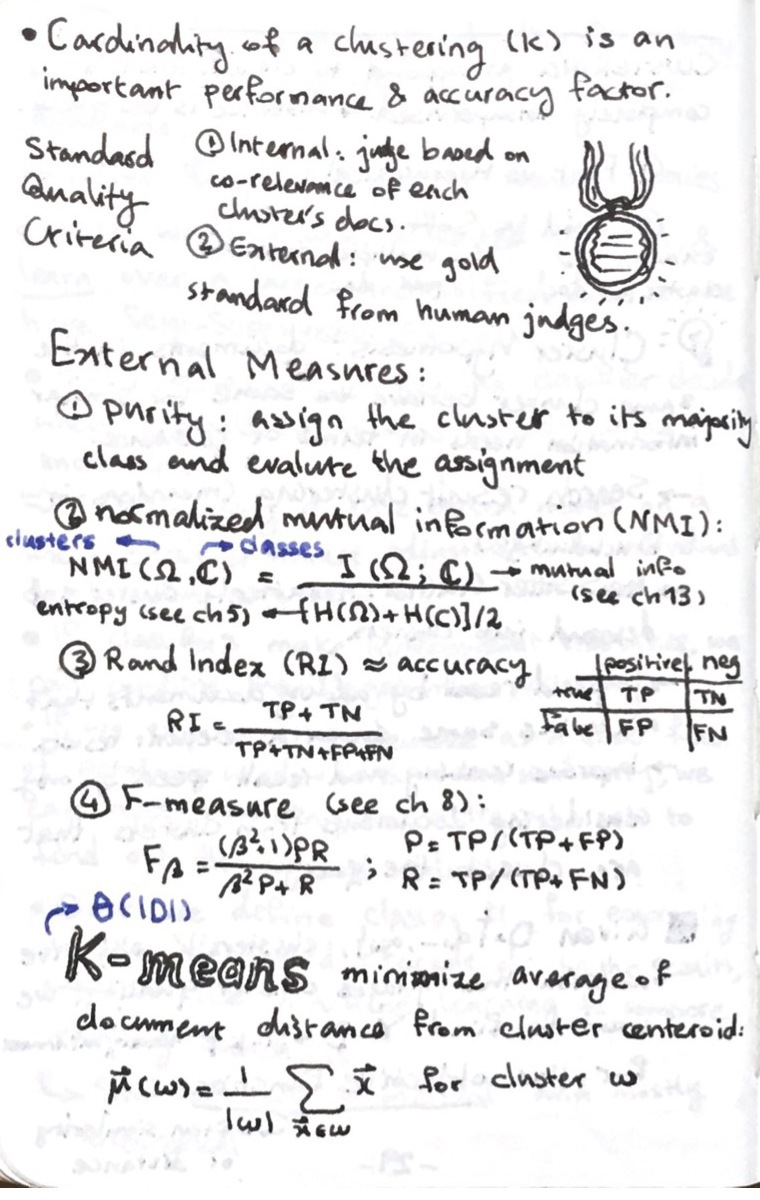 • Cardinality of a clustering (K) is an
important performance & accuracy factor.
Standard
Quality
Criteria
① Internal: juge based on
co-relevance of each
cluster's docs.
② External: use gold
standard from human judges.
External Measures:
① purity: assign the cluster to its majority
class and evalute the assignment
② normalized mutual information (NMI):
clusters ← → classes
NMI(Ω,ℂ) = I(Ω;ℂ) / [H(Ω)+H(C)]/2 → mutual info
(see ch13)
entropy (see ch5) ←
③ Rand Index (RI) ≈ accuracy
RI = TP+TN / TP+TN+FP+FN
positive neg
true TP TN
False FP FN
④ F-measure (see ch 8):
Fβ = (β²+1)PR / β²P+R ; P = TP/(TP+FP)
R = TP/(TP+FN)
→ θ(|D|)
K-means minimize average of
document distance from cluster centeroid:
μ⃗(ω) = 1/|ω| ∑ x⃗∈ω x⃗ for cluster ω